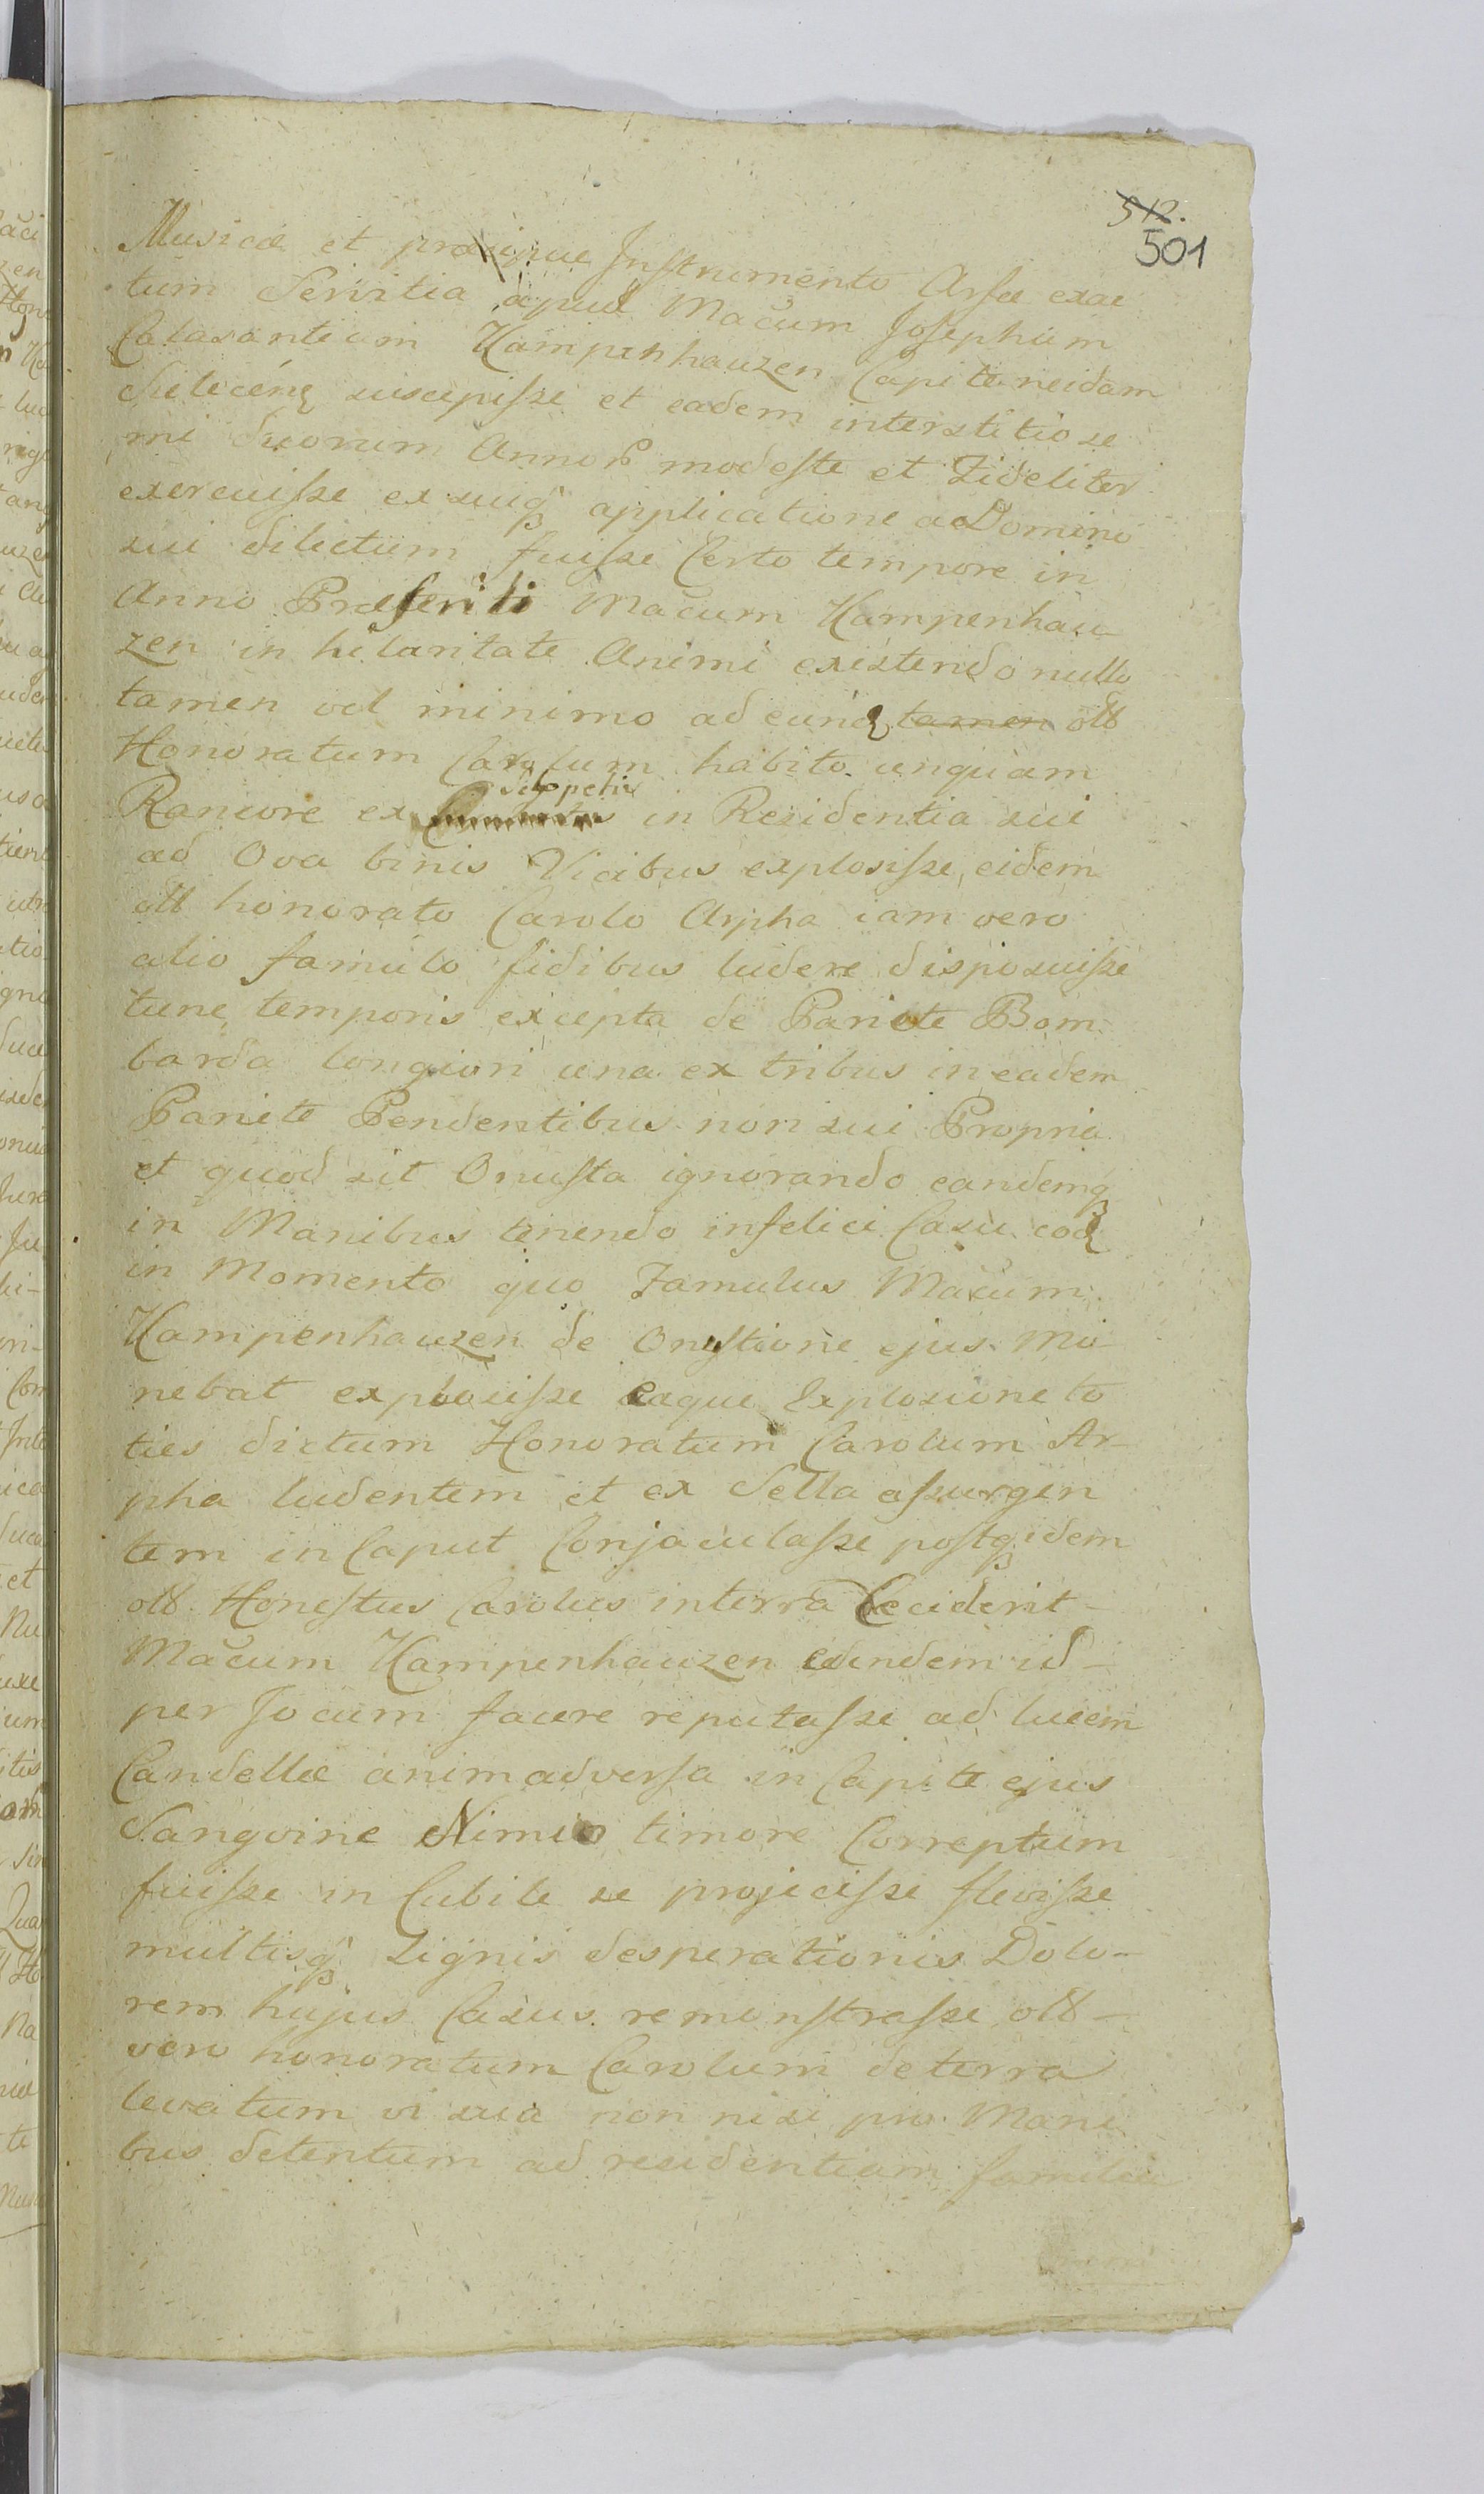 512.
501
Musicæ et præcipue Instrumento Arfæ exac
tum Servitia apud Macum Josephum
Calasantium Kampenhauzen Capitaneidam
suscepisse et eadem interstitio se
mi duorum Annor modeste et Fideliter
exercuisse ex suaq applicatione a Domino
sui dilectum fuisse Certo tempore in
Anno Præteriti Macum Kampenhau
zen in hilaritate Animi existendo nullo
tamen vel minimo ad eund tamen olb
Honoratum Carolum habito unquam
Rancore ex Sclopetis in Residentia sui
ad Ova binis Vicibus explosisse, eidem
olb honorato Carolo Arpha iam vero
alio famulo fidibus ludere disposuisse
tunc temporis excepta de Pariete Bom
barda longiori una ex tribus in eadem
Pariete Pendentibus non sui Propria
et quod sit Onusta ignorando eandemq
in Manibus tenendo infelici Casu eod
in Momento quo Famulus Macum
Kampenhauzen de Onustione ejus Mo
nebat explosisse eaque Explosione to
ties dictum Honoratum Carolum Ar-
pha ludentem et ex Sella assurgen
tem in Caput Conjaculasse postq idem
olb Honestus Carolus in terra Ceciderit -
Macum Kampenhauzen eundem id -
per Jocum facere reputasse ad lucem
Candellæ animadversa in Capite ejus
Sangvine Nimio timore Correptum
fuisse in Cubile se projecisse flevisse
multisq Signis desperationis Dolo-
rem hujus Casus remonstrasse olb -
vero honoratum Carolum de terra
levatum vi sua non nisi pro Mani
bus detentum ad residentiam familiæ